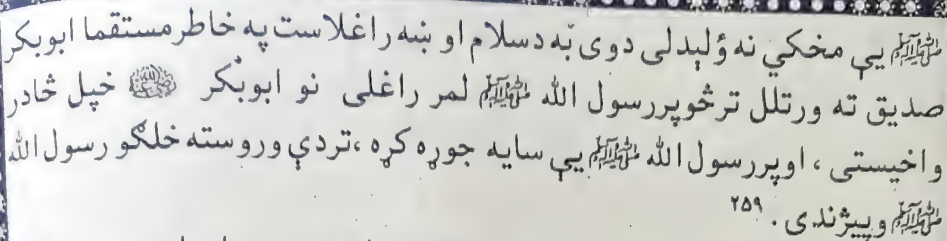 ﷺ يې مخکي نه ؤليدلى دوى به دسلام او ښه راغلاست په خاطر مستقما ابوبکر
صديق ته ورتلل ترڅو پررسول الله ﷺ لمر راغلى نو ابوبکر ﷺ خپل څادر
واخيستى ، اوپررسول الله ﷺ يې سايه جوړه کړه ،تردې وروسته خلګو رسول الله
ﷺ وپيژندى . ۲۵۹